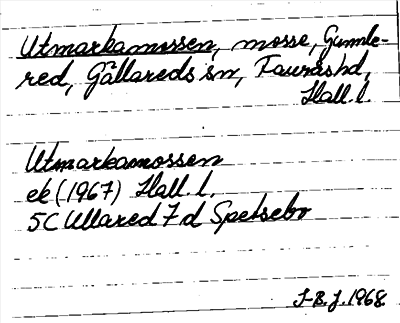 Utmarkamossen, mosse, Gunnla-
red, Gällareds sn, Faurås hd,
Hall. l.
Utmarkamossen
ek (1967) Hall. l.
5C Ullared 7d Spetsebo
J-B. J. 1968